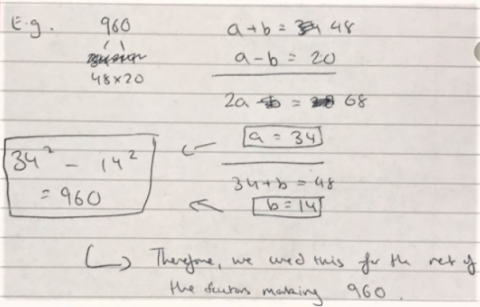 E.g. 960
48 x 20
a + b = 48
a - b = 20
2a = 68
a = 34
34 + b = 48
b = 14
34² - 14²
= 960
Therefore, we used this for the rest of
the factors making 960.